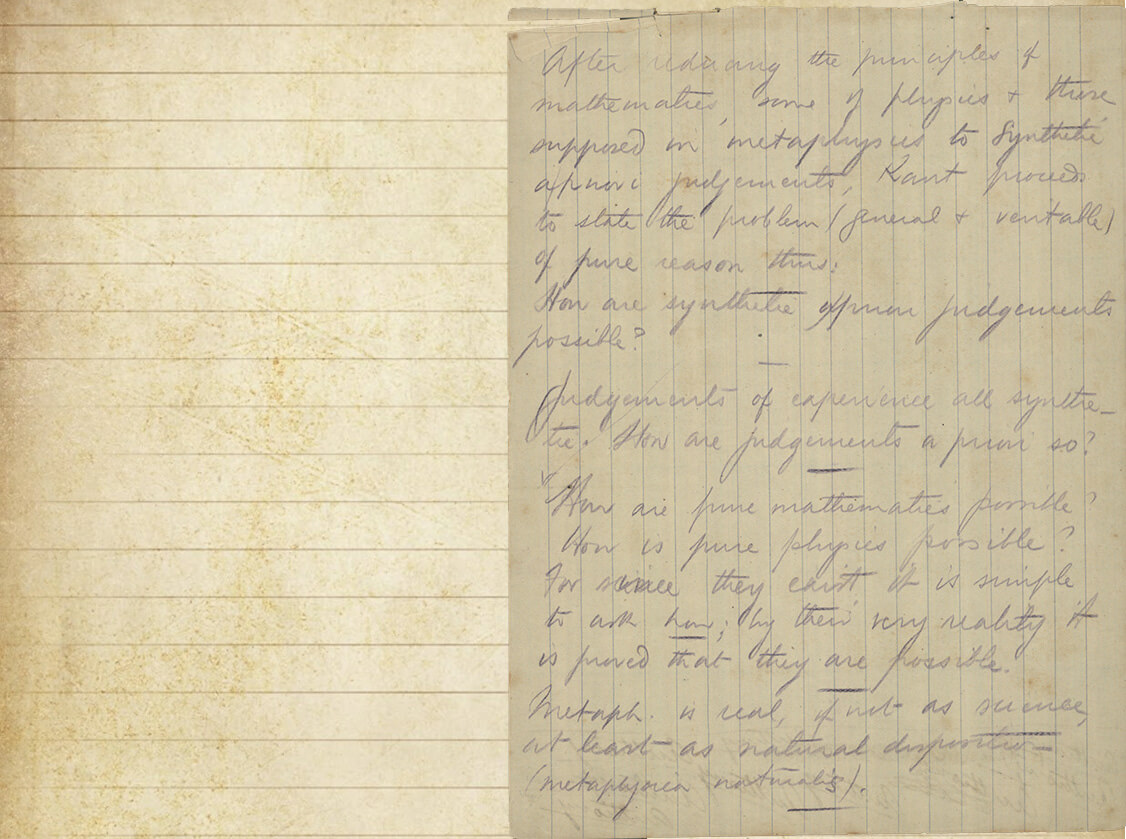 After reducing the principles of
mathematics, some of physics + those
supposed in metaphysics to synthetic
apriori judgements, Kant proceeds
to state the problem (general + veritable)
of pure reason thus:
How are synthetic apriori judgements
possible?
Judgements of experience all synthe-
tic. How are judgements a priori so?
"How are pure mathematics possible?
How is pure physics possible?
For since they exist it is simple
to ask how; by their very reality it
is proved that they are possible.
Metaph. is real, if not as science,
at least as natural disposition
(metaphysica naturalis).